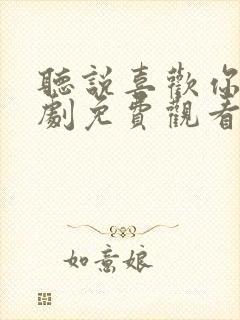 聽說喜歡你
劇免費觀看
如意娘